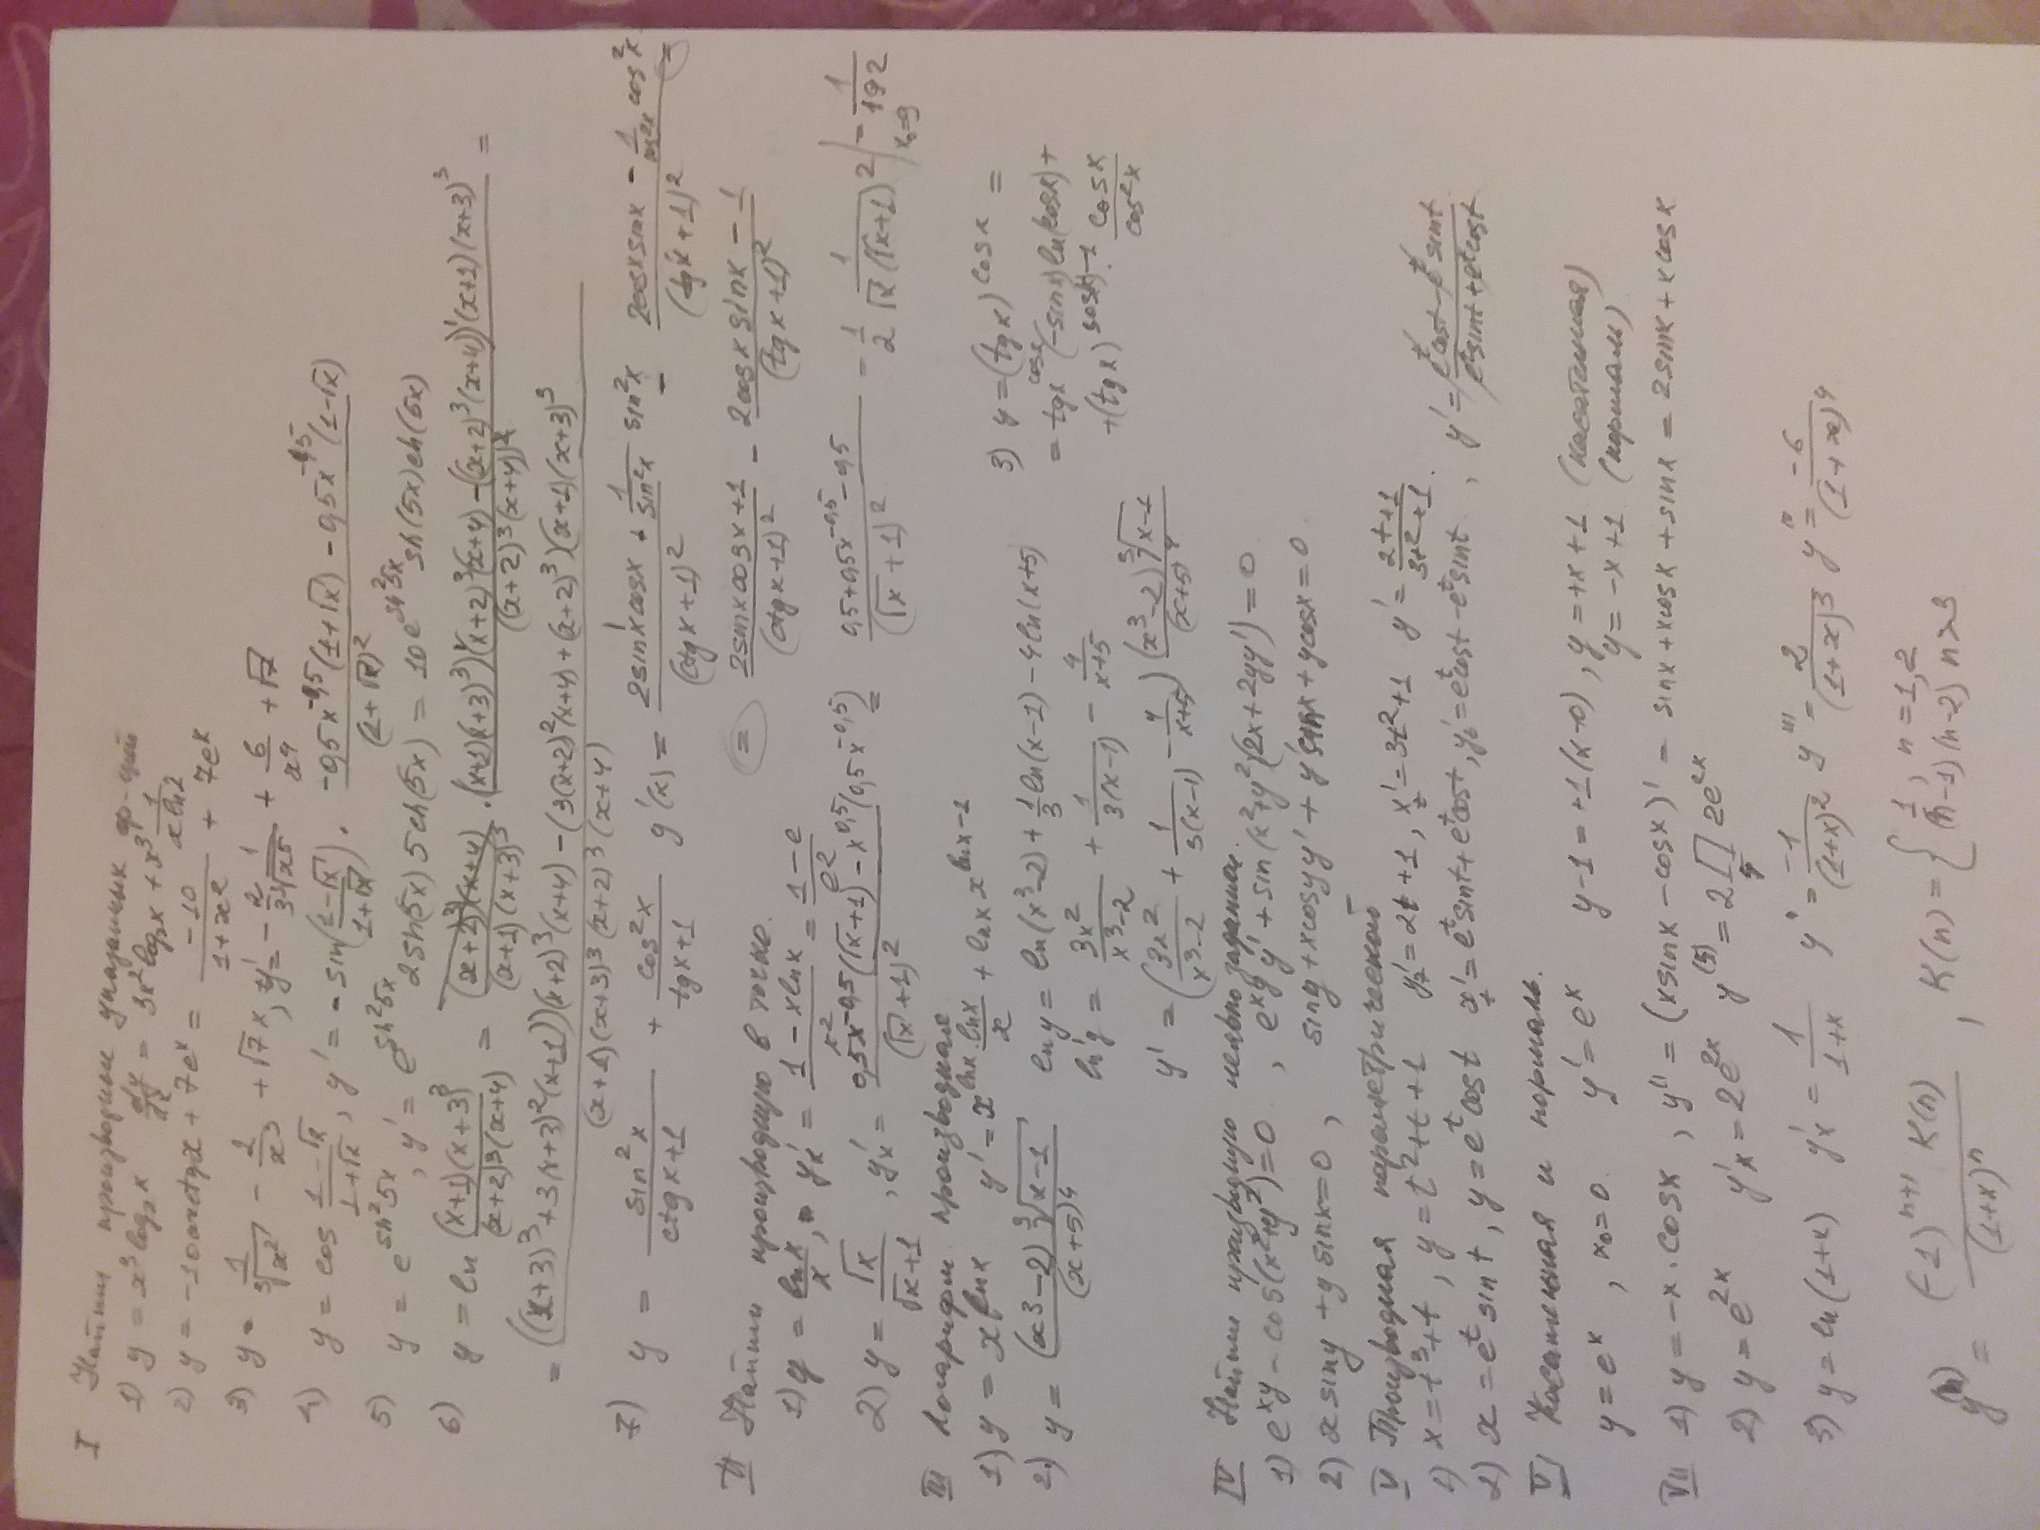 I Найти производную указанных ф-ций
1) y = x³ log₂x  dy/dx = 3x² log₂x + x³ 1/(x ln2)
2) y = -10 arctgx + 7eˣ = -10/(1+x²) + 7eˣ
3) y = 1/∛x² - 2/x³ + √7 x, y' = -2/3 1/∛x⁵ + 6/x⁴ + √7
4) y = cos (1-√x)/(1+√x), y' = -sin((1-√x)/(1+√x)) · (-0,5x^-0,5(1+√x) - 0,5x^-0,5(1-√x))/(1+√x)²
5) y = e^(sh²5x), y' = e^(sh²5x) 2sh(5x) 5ch(5x) = 10e^(sh²5x) sh(5x)ch(5x)
6) y = ln ((x+1)(x+3)³)/((x+2)³(x+4)) = ((x+2)³(x+4))/((x+1)(x+3)³) · (((x+1)(x+3)³)'(x+2)³(x+4) - ((x+2)³(x+4))'(x+1)(x+3)³)/((x+2)³(x+4))² =
= (((x+3)³ + 3(x+3)²(x+1))(x+2)³(x+4) - (3(x+2)²(x+4) + (x+2)³)(x+1)(x+3)³)/((x+1)(x+3)³(x+2)³(x+4))
7) y = sin²x/(ctgx+1) + cos²x/(tgx+1)  y'(x) = (2sinx cosx + 1/sin²x sin²x)/(ctgx+1)² - (2cosx sinx - 1/cos²x cos²x)/(tgx+1)² =
= (2sinx cosx+1)/(ctgx+1)² - (2cosx sinx - 1)/(tgx+1)²
II Найти производную в точке.
1) y = lnx/x, y'x = (1 - x lnx)/x² = (1-e)/e²
2) y = √x/(√x+1), y'x = (0,5x^-0,5(√x+1) - x^0,5(0,5x^-0,5))/(√x+1)² = (0,5+0,5x^-0,5 - 0,5)/(√x+1)² = 1/2 1/(√x(√x+1)²)|x₀=9 = 1/192
III Логарифм. производная
1) y = x^lnx  y' = x^lnx · lnx/x + lnx x^(lnx-1)
2) y = ((x³-2)∛(x-1))/(x+5)⁴  ln y = ln(x³-2) + 1/3 ln(x-1) - 4ln(x+5)
ln'y = 3x²/(x³-2) + 1/(3(x-1)) - 4/(x+5)
y' = (3x²/(x³-2) + 1/(3(x-1)) - 4/(x+5)) ((x³-2)∛(x-1))/(x+5)⁴
3) y = (tgx)^cosx =
= tgx^cosx (-sinx) ln(cosx) +
+ (tgx)^(cosx-1) · cosx/cos²x
IV Найти производную неявно заданной.
1) eˣy - cos(x²+y²)=0, eˣy y' + sin(x²+y²)(2x+2yy')=0
2) x siny + y sinx=0, siny + x cosy y' + y' sinx + y cosx=0
V Производная параметрической
1) x=t³+t, y=t²+t+1  y't = 2t+1, x't = 3t²+1  y' = (2t+1)/(3t²+1).
2) x=eᵗsint, y=eᵗcost  x't = eᵗsint+eᵗcost, y't = eᵗcost - eᵗsint, y' = (eᵗcost - eᵗsint)/(eᵗsint+eᵗcost)
VI Касательная и нормаль.
y=eˣ, x₀=0  y'=eˣ  y-1 = +1(x-0), y = +x+1 (касательная)
y = -x+1 (нормаль)
VII 1) y = -x·cosx, y'' = (xsinx - cosx)' = sinx + xcosx + sinx = 2sinx + xcosx
2) y = e^2x  y'x = 2e^2x  y^(5) = 2∏ 2e^2x
3) y = ln(1+x)  y'x = 1/(1+x)  y'' = -1/(1+x)²  y''' = 2/(1+x)³  y'''' = -6/(1+x)⁴
y^(n) = ((-1)^(n+1) K(n))/(1+x)ⁿ, K(n) = { 1, n=1,2
(n-1)(n-2) n≥3